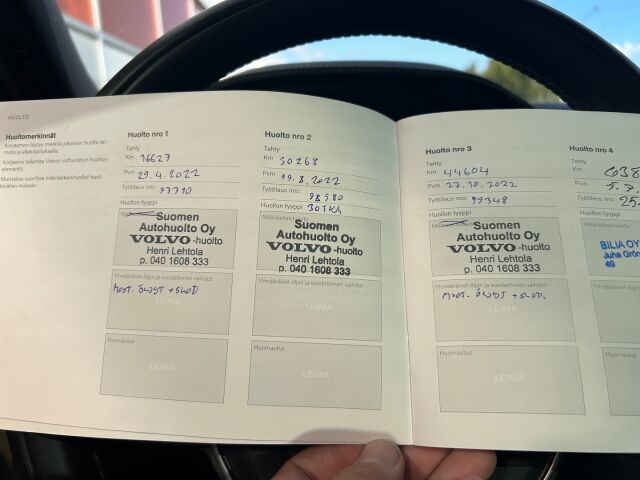 HUOLTO
Huoltomerkinnät
Korjaamon täytyy merkitä jokainen huolto
malla ja allekirjoituksella.
Korjaamo tallentaa Volvon valtuutetun huollon
elementit.
Muistakaa suorittaa määräaikaishuollot
Huolto nro 1
Tehty
Km 16627
Pvm 29.4.2022
Työtilaus nro: 97710
Huollon tyyppi
Suomen
Autohuolto Oy
VOLVO-huolto
Henri Lehtola
p. 040 1608 333
Ylimääräiset öljyn ja suodattimen vaihdot
MOOT. ÖLJYT + SUOD
LEIMA
Huomautus
LEIMA
Huolto nro 2
Tehty
Km 30268
Pvm 19.8.2022
Työtilaus nro: 98580
Huollon tyyppi 30TKM
Määräaikaishuolto
Suomen
Autohuolto Oy
VOLVO-huolto
Henri Lehtola
p. 040 1608 333
Ylimääräiset öljyn ja suodattimen vaihdot
LEIMA
Huomautus
LEIMA
Huolto nro 3
Tehty
Km 44604
Pvm 27.10.2022
Työtilaus nro: 99348
Huollon tyyppi
Suomen
Autohuolto Oy
VOLVO-huolto
Henri Lehtola
p. 040 1608 333
Ylimääräiset öljyn ja suodattimen vaihdot
MOOT. ÖLJYT + SUOD.
LEIMA
Huomautus
LEIMA
Huolto nro 4
Tehty
Km
Pvm
Työtilaus nro:
Huollon tyyppi
Määräaikaishuolto
BILIA OY
Juha Grön
49
Ylimääräiset
Huomautus